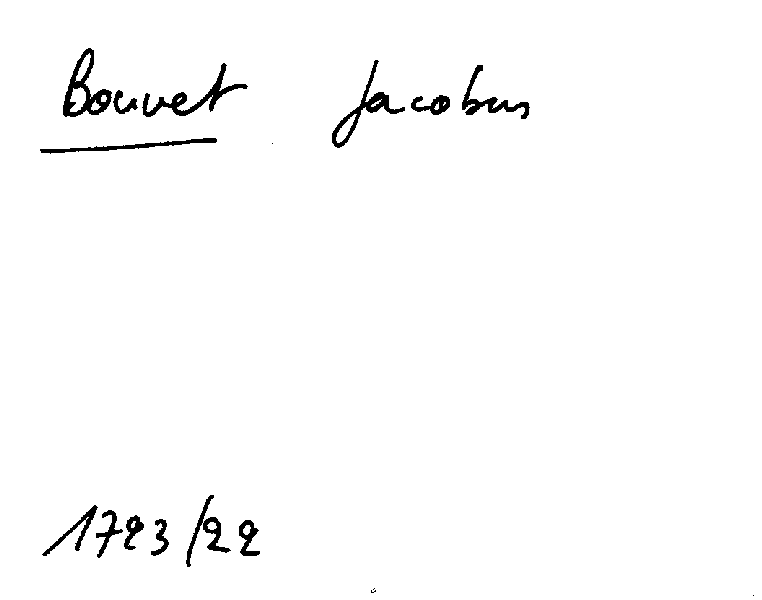 Bouvet Jacobus
1723/22